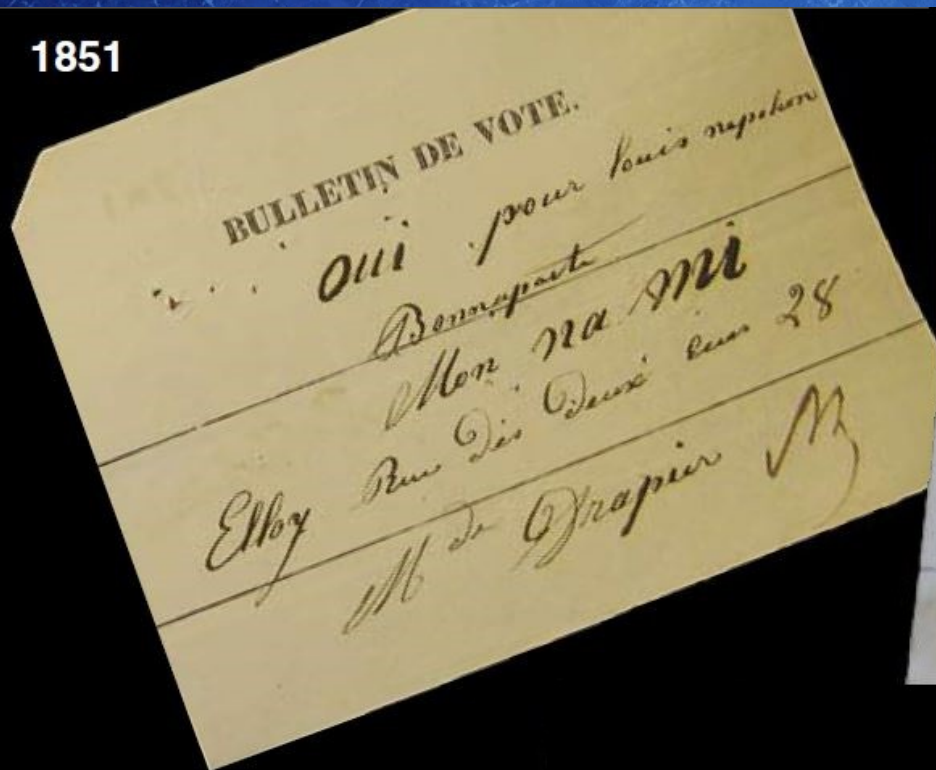 1851
BULLETIN DE VOTE.
oui pour louis napoleon
Bonnaparte
Mon na mi
Elloy Rue Des Deux 28
Md Drapier